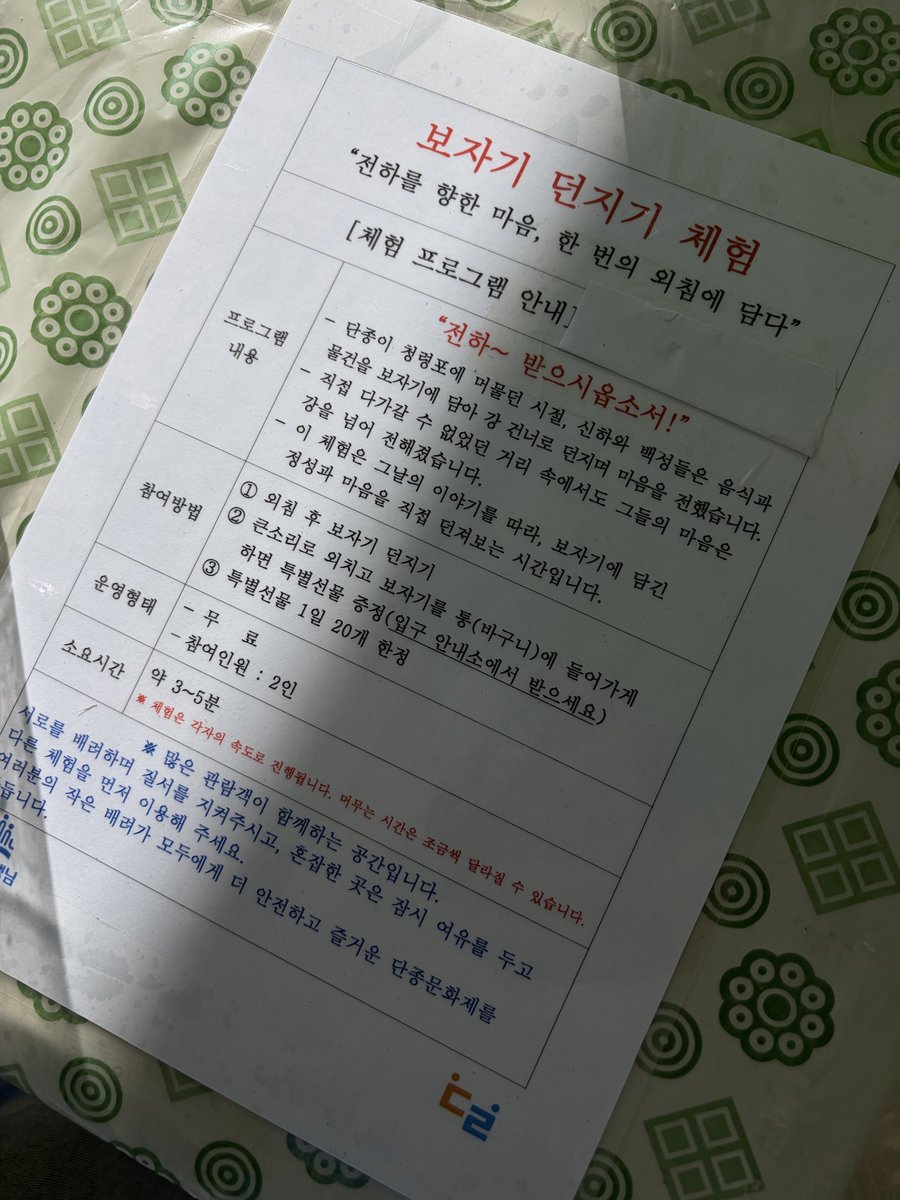 보자기 던지기 체험
“전하를 향한 마음, 한 번의 외침에 담다”
[체험 프로그램 안내]
프로그램
내용
“전하~ 받으시옵소서!”
- 단종이 청령포에 머물던 시절, 신하와 백성들은 음식과
물건을 보자기에 담아 강 건너로 던지며 마음을 전했습니다.
- 직접 다가갈 수 없었던 거리 속에서도 그들의 마음은
강을 넘어 전해졌습니다.
- 이 체험은 그날의 이야기를 따라, 보자기에 담긴
정성과 마음을 직접 던져보는 시간입니다.
참여방법
① 외침 후 보자기 던지기
② 큰소리로 외치고 보자기를 통(바구니)에 들어가게
하면 특별선물 증정(입구 안내소에서 받으세요)
③ 특별선물 1일 20개 한정
운영형태
- 무 료
- 참여인원 : 2인
소요시간
약 3~5분
※ 체험은 각자의 속도로 진행됩니다. 머무는 시간은 조금씩 달라질 수 있습니다.
※ 많은 관람객이 함께하는 공간입니다.
서로를 배려하며 질서를 지켜주시고, 혼잡한 곳은 잠시 여유를 두고
다른 체험을 먼저 이용해 주세요.
여러분의 작은 배려가 모두에게 더 안전하고 즐거운 단종문화제를